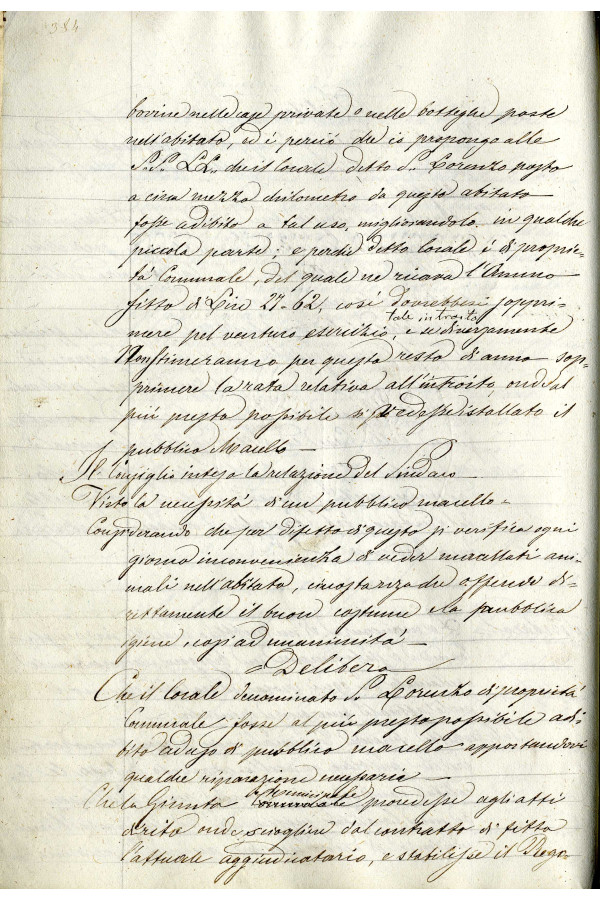 384
bovine nelle case private o nelle botteghe poste
nell'abitato, ed è perciò che io propongo alle
S.S. LL. che il locale detto S. Lorenzo posto
a circa mezzo chilometro da questo abitato
fosse adibito a tal uso, migliorandolo in qualche
piccola parte; e perchè detto locale è di proprie-
tà Comunale, del quale ne ricava l'annuo
fitto di Lire 27-62, così dovrebbesi soppri-
mere pel venturo esercizio tale introito, e se diversamente
Non stimeranno per questo resto di anno sop-
primere la rata relativa all'introito, onde al
più presto possibile si vedesse istallato il
pubblico Macello —
Il Consiglio intesa la relazione del Sindaco
Visto la necessità di un pubblico macello -
Considerando che per difetto di questo si verifica ogni
giorno inconvenienza di veder macellati ani-
mali nell'abitato, circostanza che offende di-
rettamente il buon costume e la pubblica
igiene, così ad unanimità —
= Delibera
Che il locale denominato S. Lorenzo di proprietà
Comunale fosse al più presto possibile adi-
bito ad uso di pubblico macello apportandovi
qualche riparazione necessaria —
Che la Giunta Municipale procedesse agli atti
di rito onde sciogliere dal contratto di fitto
l'attuale aggiudicatario, e stabilisse il Rego-